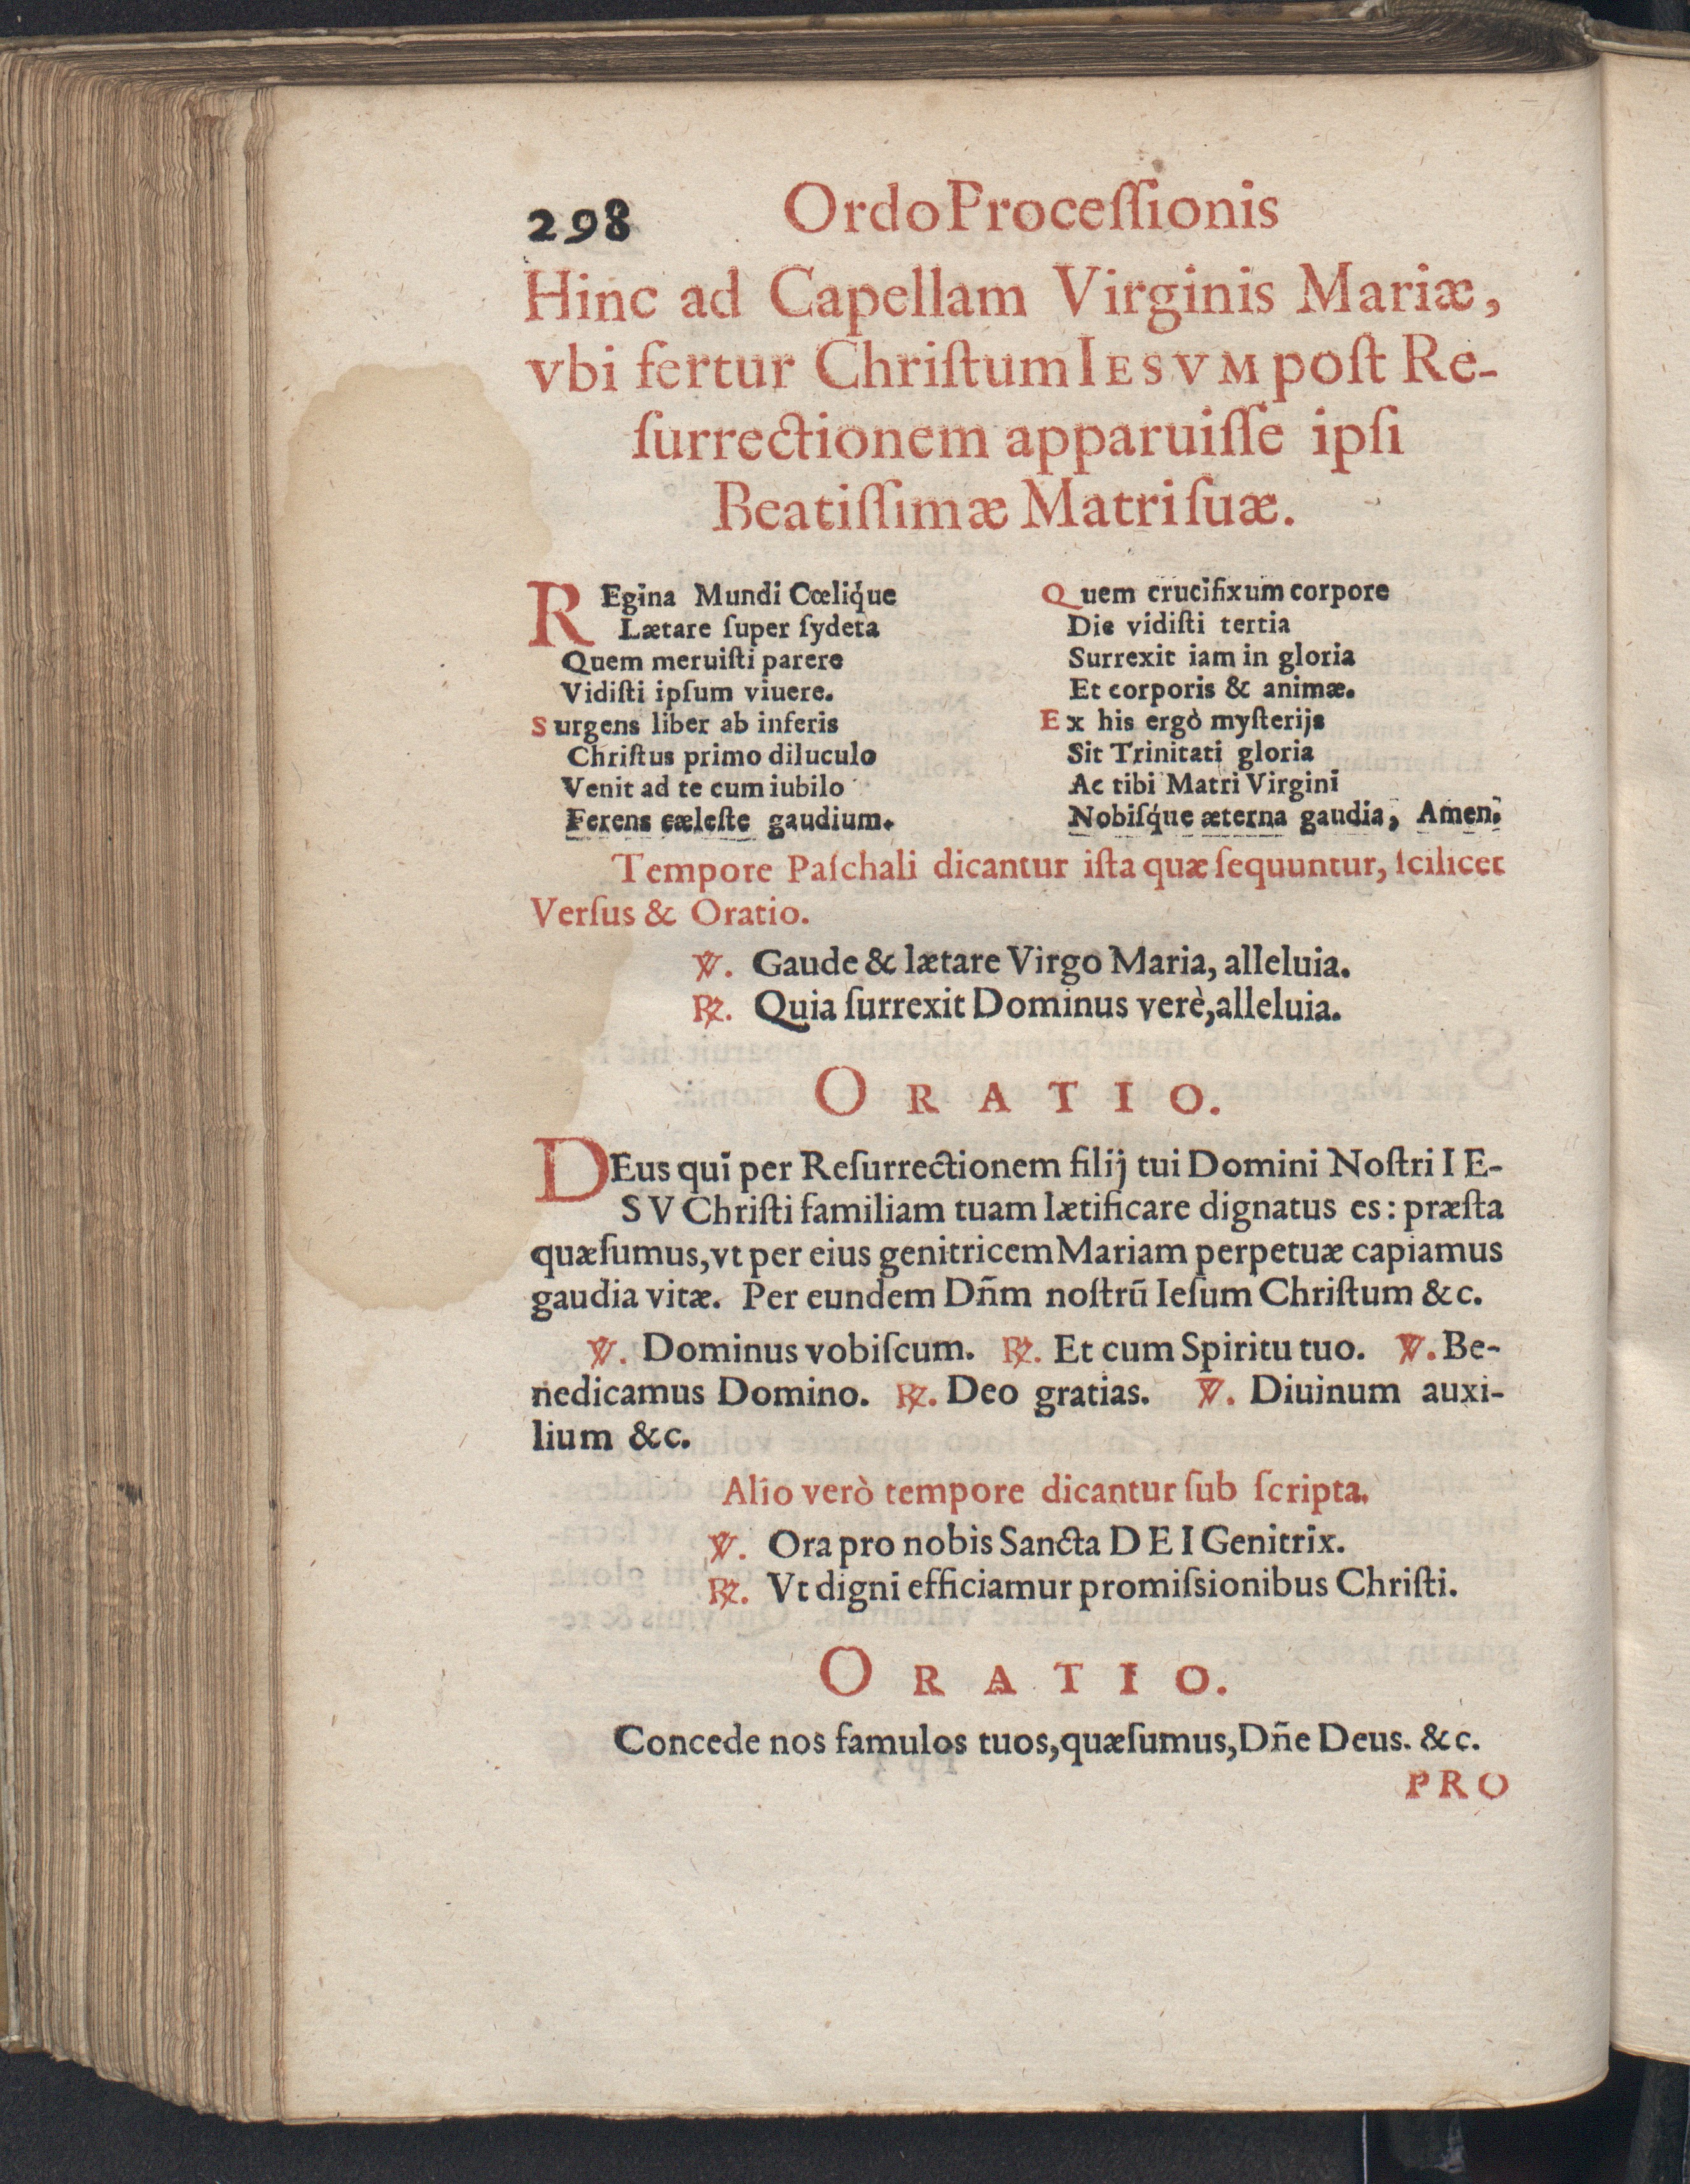 298 Ordo Proceſſionis
Hinc ad Capellam Virginis Mariæ,
vbi fertur Chriſtum IESVM poſt Re-
ſurrectionem apparuiſſe ipſi
Beatiſſimæ Matri ſuæ.
REgina Mundi Cœliq́ue
Lætare ſuper ſydeta
Quem meruiſti parere
Vidiſti ipſum viuere.
Surgens liber ab inferis
Chriſtus primo diluculo
Venit ad te cum iubilo
Ferens cæleſte gaudium.
Quem crucifixum corpore
Die vidiſti tertia
Surrexit iam in gloria
Et corporis & animæ.
Ex his ergò myſterijs
Sit Trinitati gloria
Ac tibi Matri Virgini
Nobiſq́ue æterna gaudia, Amen.
Tempore Paſchali dicantur iſta quæ ſequuntur, ſcilicet
Verſus & Oratio.
℣. Gaude & lætare Virgo Maria, alleluia.
℟. Quia ſurrexit Dominus verè, alleluia.
ORATIO.
DEus qui per Reſurrectionem filij tui Domini Noſtri IE-
SV Chriſti familiam tuam lætificare dignatus es: præſta
quæſumus, vt per eius genitricem Mariam perpetuæ capiamus
gaudia vitæ. Per eundem Dñm noſtrū Ieſum Chriſtum &c.
℣. Dominus vobiſcum. ℟. Et cum Spiritu tuo. ℣. Be-
nedicamus Domino. ℟. Deo gratias. ℣. Diuinum auxi-
lium &c.
Alio verò tempore dicantur ſub ſcripta.
℣. Ora pro nobis Sancta DEI Genitrix.
℟. Vt digni efficiamur promiſsionibus Chriſti.
ORATIO.
Concede nos famulos tuos, quæſumus, Dñe Deus. &c.
PRO